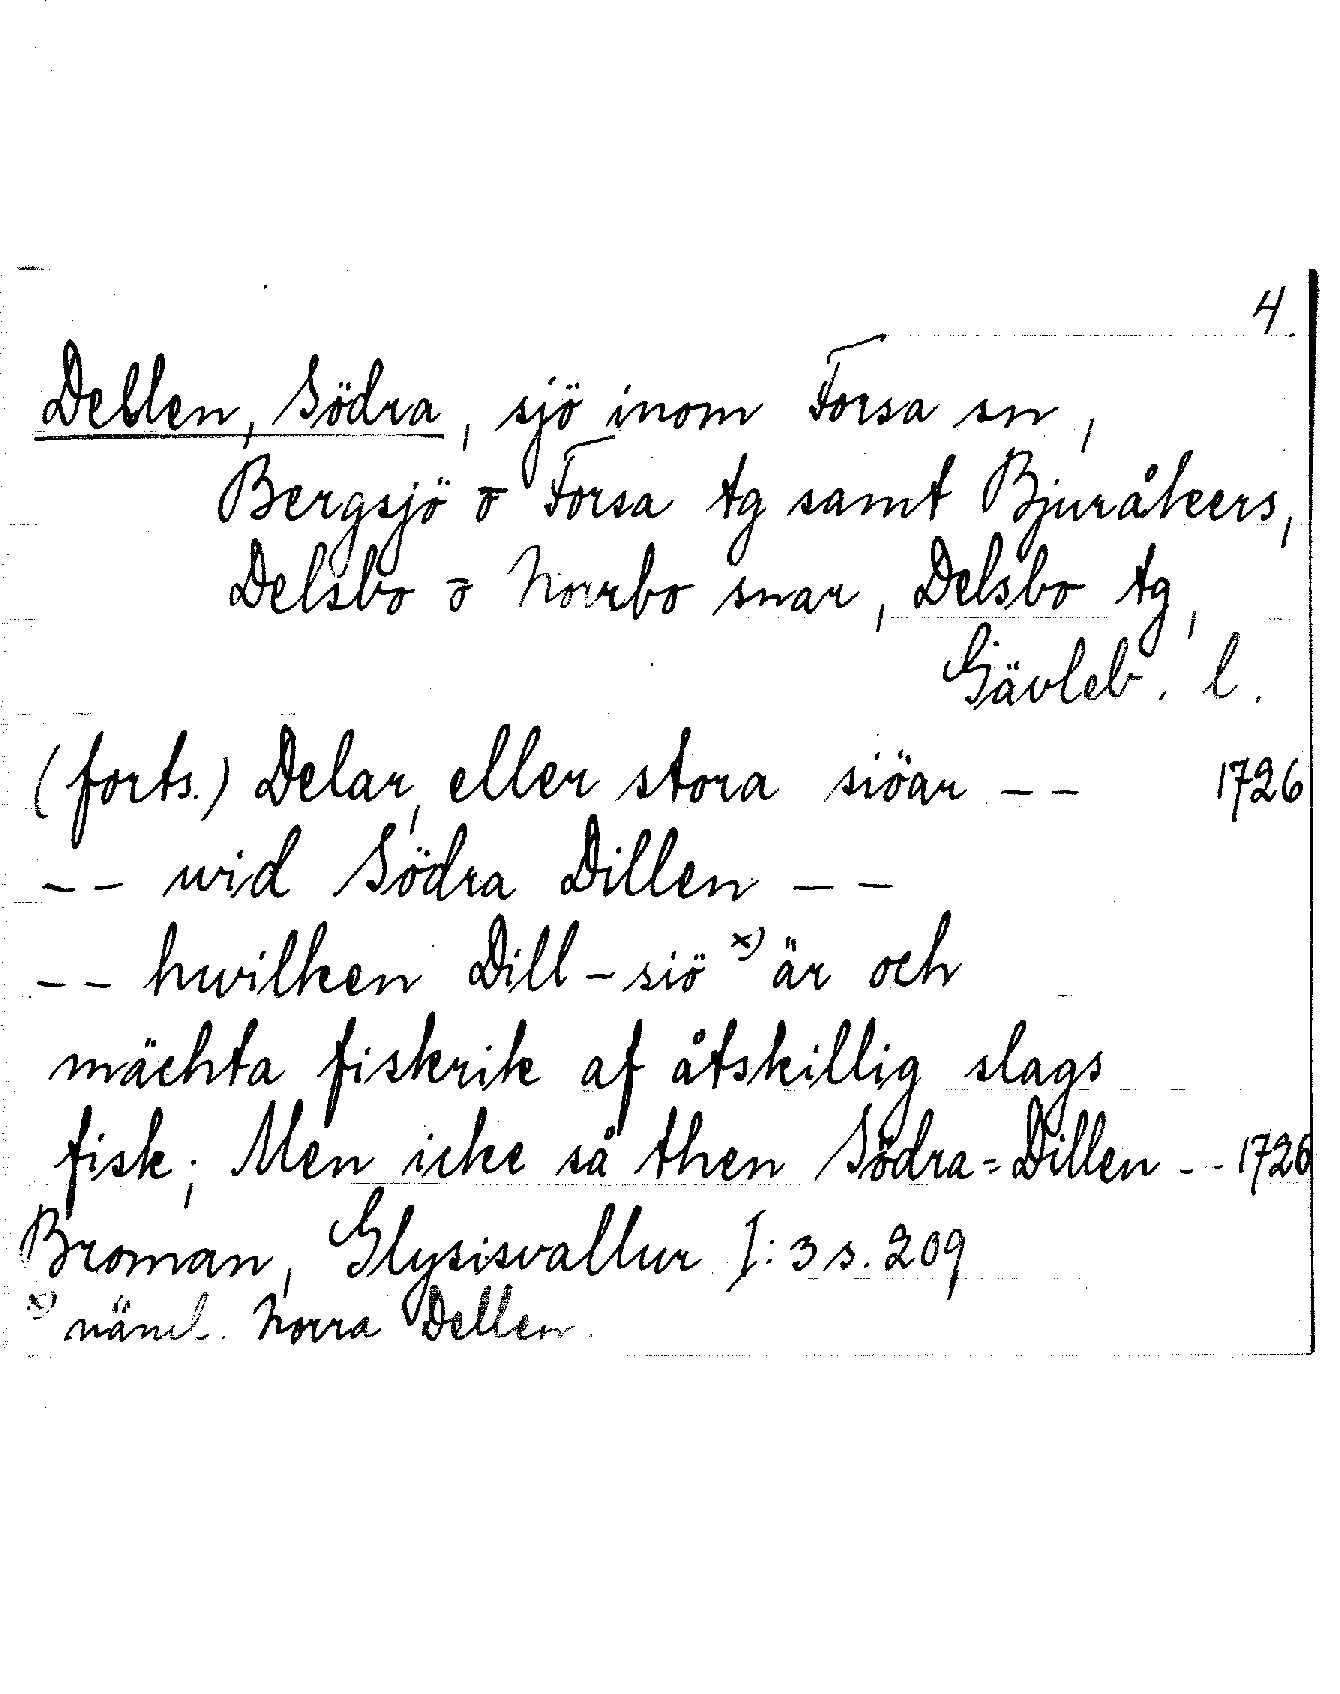 4.
Dellen, Södra, sjö inom Forsa sn,
Bergsjö o Forsa tg samt Bjuråkers,
Delsbo o Norrbo snar, Delsbo tg,
Gävleb. l.
(forts.) Delar, eller stora siöar -- 1726
-- wid Södra Dillen --
-- hwilken Dill-siö x) är och
mächta fiskrik af åtskillig slags
fisk; Men icke så then Södra=Dillen -- 1726
Broman, Glysisvallur I:3 s. 209
x) näml. Norra Dellen.